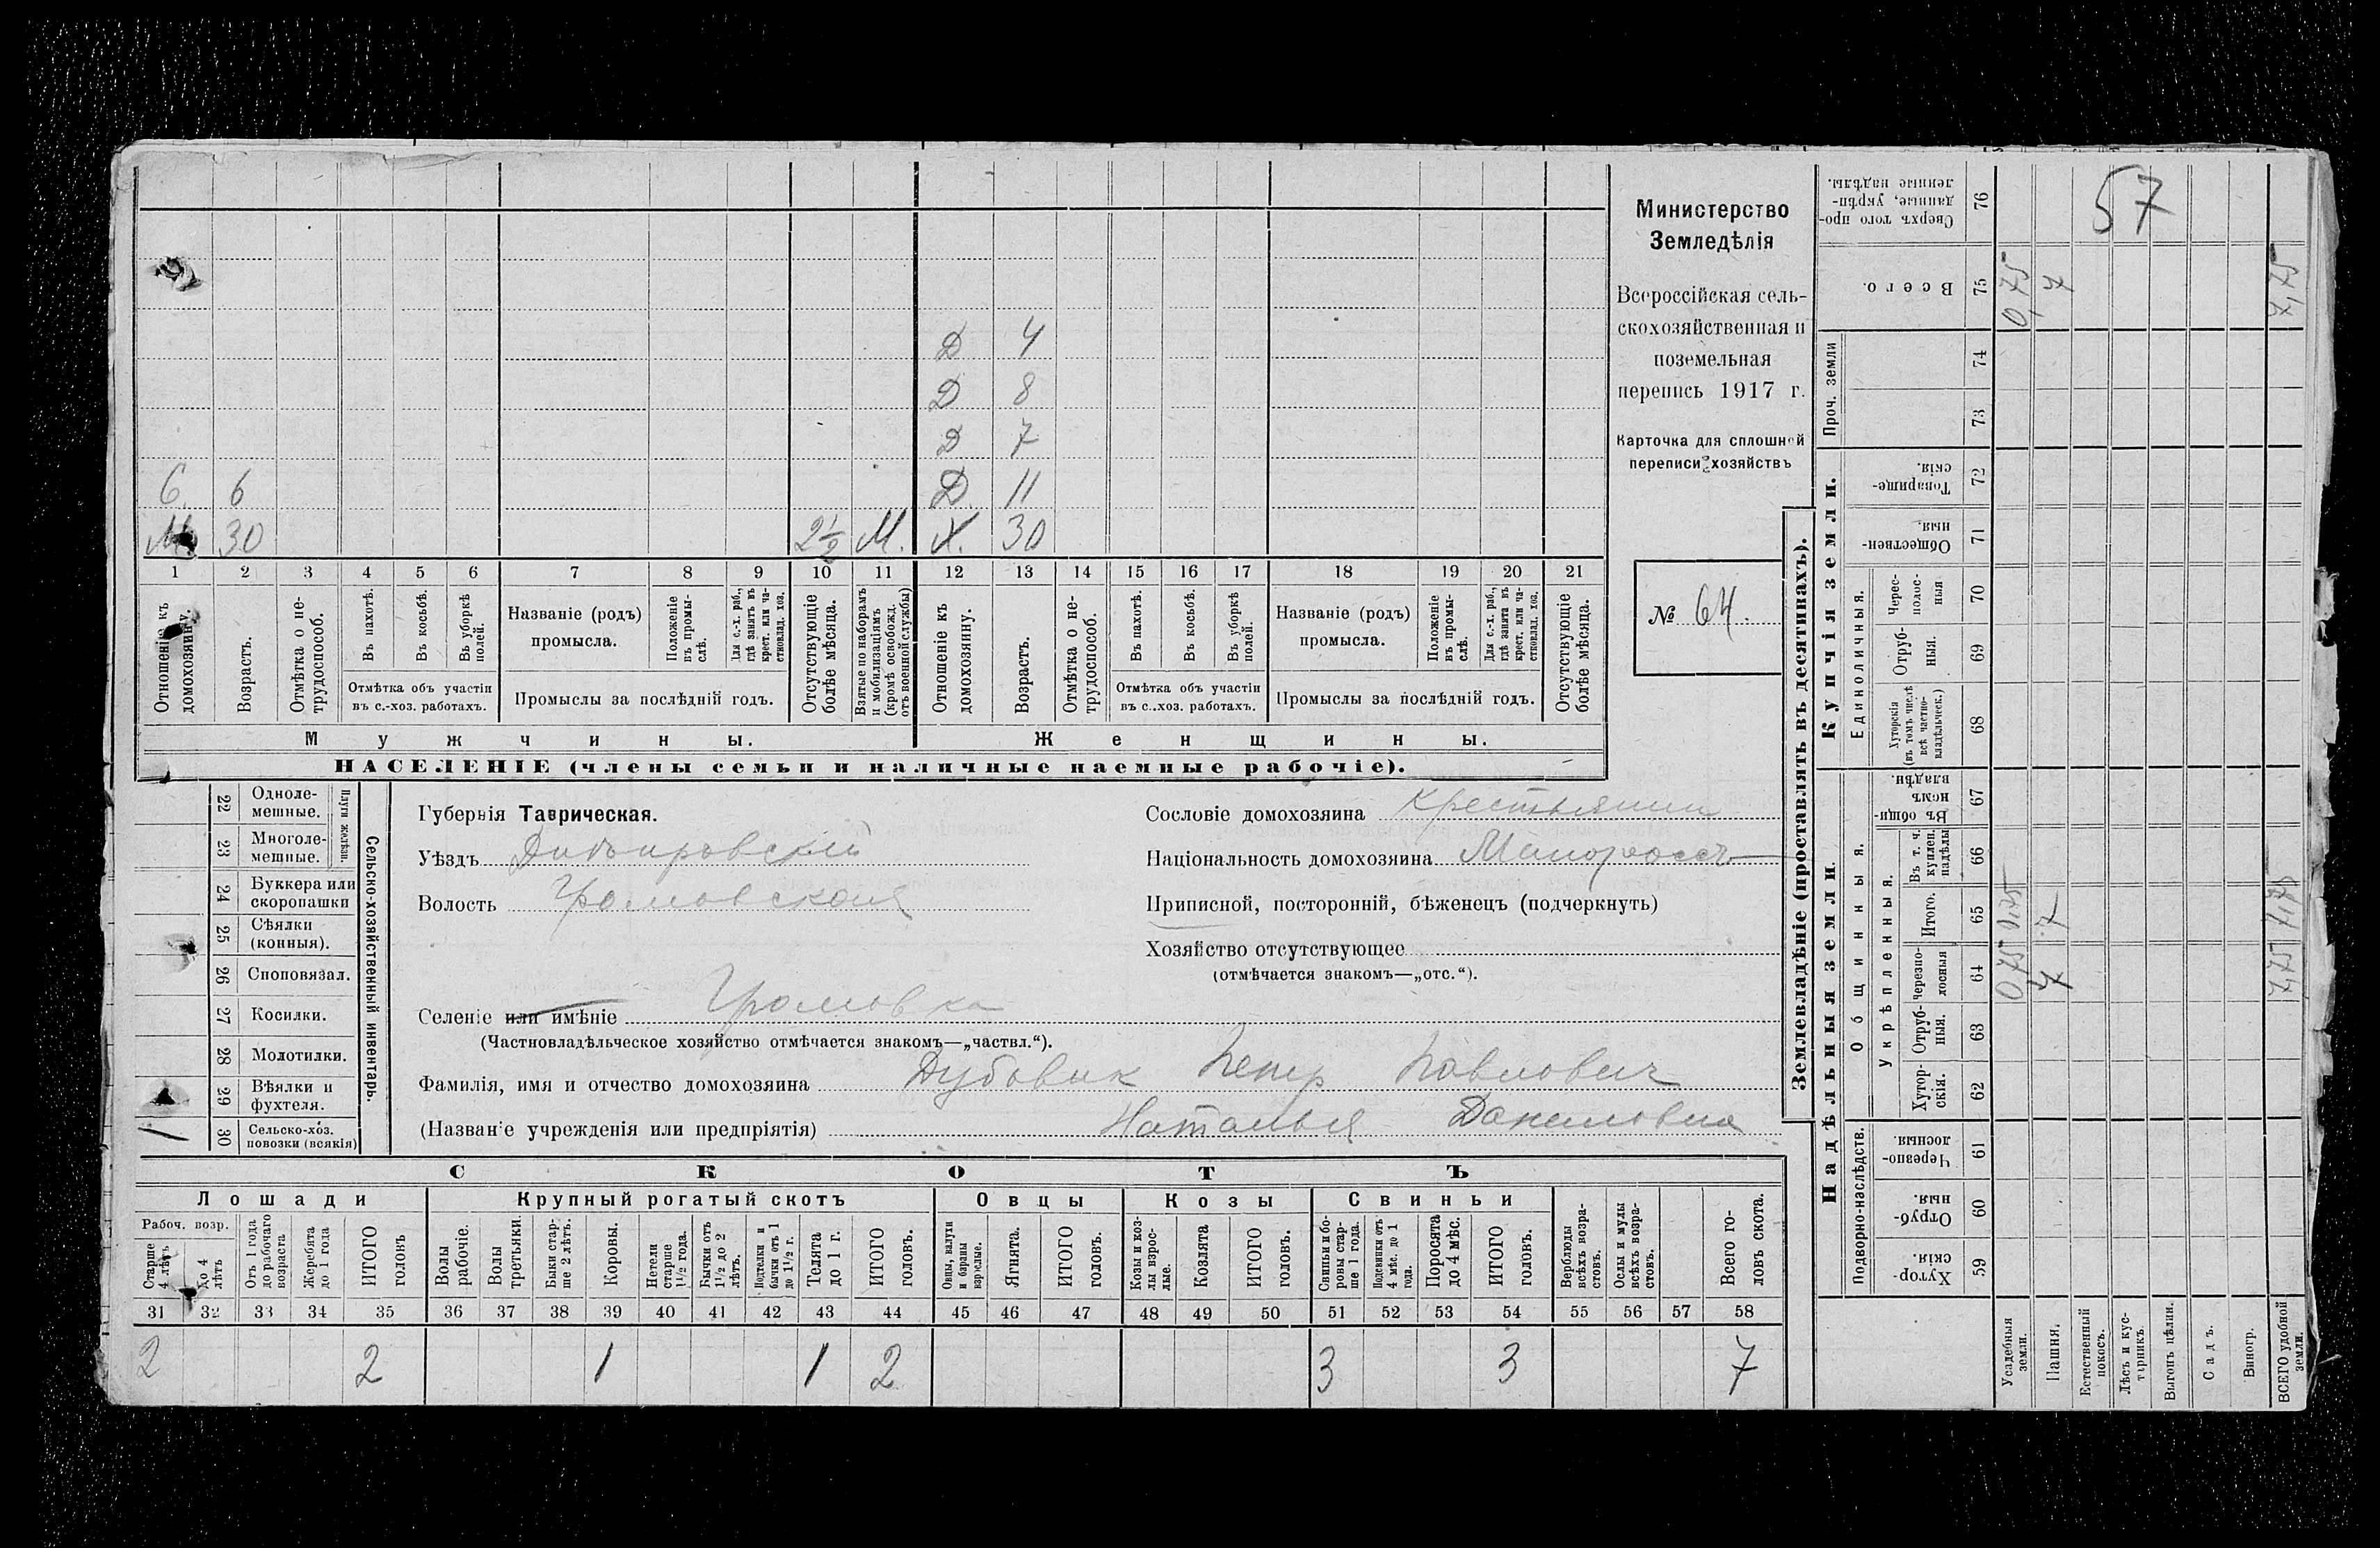 57
Министерство
Земледѣлія
Всероссійская сель-
скохозяйственная и
поземельная
перепись 1917 г.
Карточка для сплошной
переписи хозяйствъ
№ 64.
Д 4
Д 8
Д 7
С. 6 Д 11
М. 30 2½ М. Х. 30
1 2 3 4 5 6 7 8 9 10 11 12 13 14 15 16 17 18 19 20 21
Отношеніе къ домохозяину.
Возрастъ.
Отмѣтка о не-трудоспособ.
Въ пахотѣ.
Въ косьбѣ.
Въ уборкѣ полей.
Отмѣтка объ участіи
въ с.-хоз. работахъ.
Названіе (родъ)
промысла.
Положеніе въ промы-слѣ.
Для с.-х. раб., гдѣ занятъ въ крест. или ча-стновлад. хоз.
Промыслы за послѣдній годъ.
Отсутствующіе болѣе мѣсяца.
Взятые по наборамъ и мобилизаціямъ (кромѣ освобожд. отъ военной службы)
Отношеніе къ домохозяину.
Возрастъ.
Отмѣтка о не-трудоспособ.
Въ пахотѣ.
Въ косьбѣ.
Въ уборкѣ полей.
Отмѣтка объ участіи
въ с..хоз. работахъ.
Названіе (родъ)
промысла.
Положеніе въ промы-слѣ.
Для с.-х. раб., гдѣ занята въ крест. или ча-стновлад. хоз.
Промыслы за послѣдній годъ.
Отсутствующіе болѣе мѣсяца.
Мужчины. Женщины.
НАСЕЛЕНІЕ (члены семьи и наличные наемные рабочіе).
22 Одноле-мешные.
23 Многоле-мешные.
Плуги желѣзн.
24 Буккера или скоропашки
25 Сѣялки (конныя).
26 Сноповязал.
27 Косилки.
28 Молотилки.
29 Вѣялки и фухтеля.
30 Сельско-хоз. повозки (всякія) 1
Сельско-хозяйственный инвентарь.
Губернія Таврическая.
Уѣздъ Днѣпровскій
Волость Громовская
Сословіе домохозяина Крестьянин
Національность домохозяина Малороссъ
Приписной, посторонній, бѣженецъ (подчеркнуть)
Хозяйство отсутствующее
(отмѣчается знакомъ—„отс.“).
Селеніе или имѣніе Громовка
(Частновладѣльческое хозяйство отмѣчается знакомъ—„частвл.“).
Фамилія, имя и отчество домохозяина Дубовик Петр Павлович
(Названіе учрежденія или предпріятія) Наталья Даниловна
СКОТЪ
Лошади Крупный рогатый скотъ Овцы Козы Свиньи
Рабоч. возр.
Старше 4 лѣтъ
до 4 лѣтъ
Отъ 1 года до рабочаго возраста
Жеребята до 1 года
ИТОГО головъ
Волы рабочіе.
Волы третьяки.
Быки стар-ше 2 лѣтъ.
Коровы.
Нетели старше 1½ года.
Бычки отъ 1½ до 2 лѣтъ.
Подтелки и бычки отъ 1 до 1½ г.
Телята до 1 г.
ИТОГО головъ.
Овцы, валухи и бараны взрослые.
Ягнята.
ИТОГО головъ.
Козы и коз-лы взрос-лые.
Козлята
ИТОГО головъ.
Свиньи и бо-ровы стар-ше 1 года.
Подсвинки отъ 4 мѣс. до 1 года.
Поросята до 4 мѣс.
ИТОГО головъ.
Верблюды всѣхъ возра-стовъ.
Ослы и мулы всѣхъ возра-стовъ.
Всего го-ловъ скота.
31 32 33 34 35 36 37 38 39 40 41 42 43 44 45 46 47 48 49 50 51 52 53 54 55 56 57 58
2 2 1 1 2 3 3 7
Землевладѣніе (проставлять въ десятинахъ).
Надѣльныя земли. Купчія земли.
Подворно-наслѣдств.
Общинныя.
Укрѣпленныя.
Единоличныя.
Проч. земли
59 Хутор-скія.
60 Отруб-ныя.
61 Черезпо-лосныя.
62 Хутор-скія.
63 Отруб-ныя.
64 Черезпо-лосныя
65 Итого.
66 Въ т. ч. куплен. надѣлы
67 Въ общи-номъ владѣн.
68 Хуторскія (въ томъ числѣ всѣ частно-владѣльческ.)
69 Отруб-ныя.
70 Черес-полос-ныя
71 Обществен-ныя.
72 Товарище-скія.
73
74
75 Всего.
76 Сверхъ того про-данные, укрѣп-ленные надѣлы.
Усадебныя земли. 0,75 0,75 0,75
Пашня. 7 7 7
Естественный покосъ.
Лѣсъ и кус-тарникъ.
Выгонъ цѣлин.
Садъ.
Виногр.
ВСЕГО удобной земли. 7,75 7,75 7,75